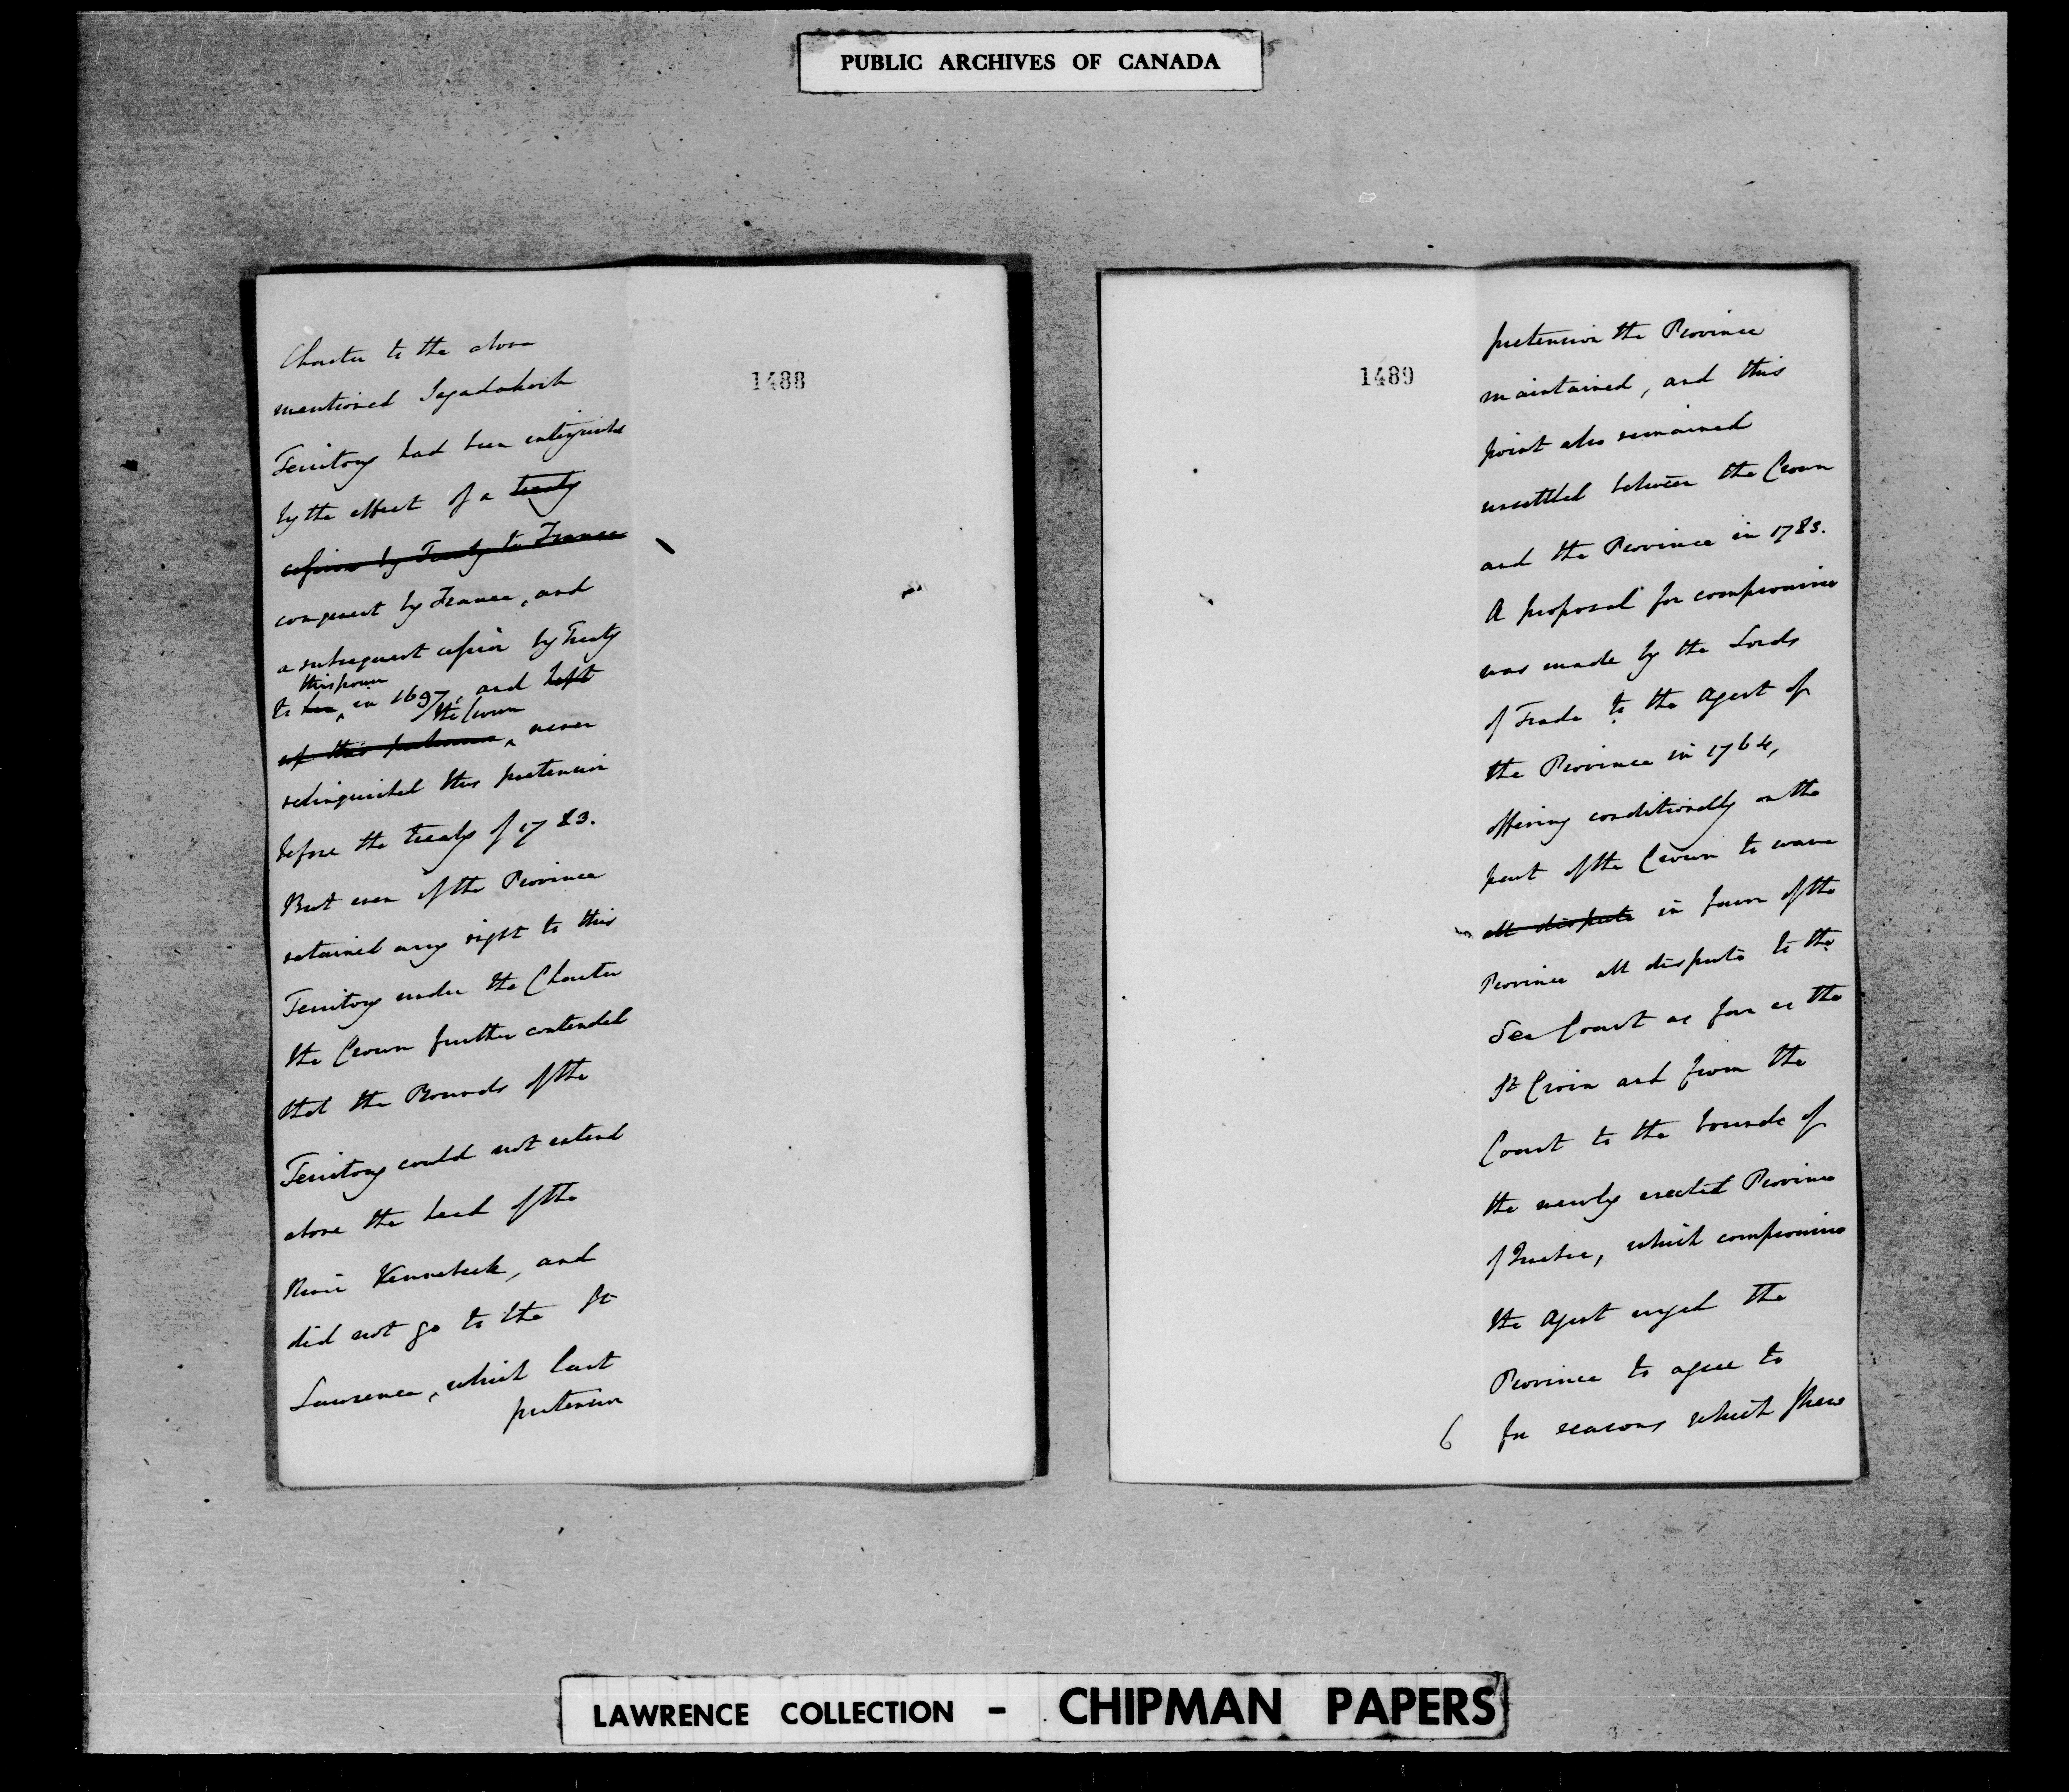 PUBLIC ARCHIVES OF CANADA
1488
Charter to the above
mentioned Sagadahock
Territory had been extinguished
by the effect of a treaty
cession by Treaty to France
conquest by France, and
a subsequent cession by Treaty
this power
to her in 1697, and left
the Crown
up this pretension never
relinquished this pretension
before the treaty of 1783.
But even if the Province
retained any right to this
Territory under the Charter
the Crown further contended
that the Bounds of the
Territory could not extend
above the head of the
River Kennebeck, and
did not go to the St
Lawrence, which last
pretension
1489
pretension the Province
maintained, and this
point also remained
unsettled between the Crown
and the Province in 1783.
A proposal for compromise
was made by the Lords
of Trade to the Agent of
the Province in 1764,
offering conditionally on the
part of the Crown to wave
all dispute in favor of the
Province all dispute to the
Sea Coast as far as the
St Croix and from the
Coast to the bounds of
the newly erected Province
of Quebec, which compromise
the Agent urged the
Province to agree to
6 for reasons which shew
LAWRENCE COLLECTION - CHIPMAN PAPERS